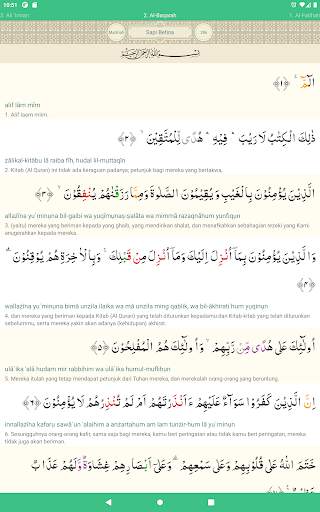 10:51
3. Ali 'Imran 2. Al-Baqarah 1. Al-Fatihah
Sapi Betina 286
بِسْمِ اللّٰهِ الرَّحْمٰنِ الرَّحِيْمِ
الۤمّۤ ۚ ﴿١﴾
alif lām mīm
1. Alif laam miim.
ذٰلِكَ الْكِتٰبُ لَا رَيْبَ ۛ فِيْهِ ۛ هُدًى لِّلْمُتَّقِيْنَ ۙ ﴿٢﴾
żālikal-kitābu lā raiba fīh, hudal lil-muttaqīn
2. Kitab (Al Quran) ini tidak ada keraguan padanya; petunjuk bagi mereka yang bertakwa,
الَّذِيْنَ يُؤْمِنُوْنَ بِالْغَيْبِ وَيُقِيْمُوْنَ الصَّلٰوةَ وَمِمَّا رَزَقْنٰهُمْ يُنْفِقُوْنَ ۙ ﴿٣﴾
allażīna yu`minụna bil-gaibi wa yuqīmụnaṣ-ṣalāta wa mimmā razaqnāhum yunfiqụn
3. (yaitu) mereka yang beriman kepada yang ghaib, yang mendirikan shalat, dan menafkahkan sebahagian rezeki yang Kami
anugerahkan kepada mereka.
وَالَّذِيْنَ يُؤْمِنُوْنَ بِمَآ اُنْزِلَ اِلَيْكَ وَمَآ اُنْزِلَ مِنْ قَبْلِكَ ۚ وَبِالْاٰخِرَةِ هُمْ يُوْقِنُوْنَ ۗ
﴿٤﴾
wallażīna yu`minụna bimā unzila ilaika wa mā unzila ming qablik, wa bil-ākhirati hum yụqinụn
4. dan mereka yang beriman kepada Kitab (Al Quran) yang telah diturunkan kepadamu dan Kitab-kitab yang telah diturunkan
sebelummu, serta mereka yakin akan adanya (kehidupan) akhirat.
اُولٰۤئِكَ عَلٰى هُدًى مِّنْ رَّبِّهِمْ ۙ وَاُولٰۤئِكَ هُمُ الْمُفْلِحُوْنَ ﴿٥﴾
ulā`ika 'alā hudam mir rabbihim wa ulā`ika humul-mufliḥụn
5. Mereka itulah yang tetap mendapat petunjuk dari Tuhan mereka, dan merekalah orang-orang yang beruntung.
اِنَّ الَّذِيْنَ كَفَرُوْا سَوَاۤءٌ عَلَيْهِمْ ءَاَنْذَرْتَهُمْ اَمْ لَمْ تُنْذِرْهُمْ لَا يُؤْمِنُوْنَ ﴿٦﴾
innallażīna kafarụ sawā`un 'alaihim a anżartahum am lam tunżir-hum lā yu`minụn
6. Sesungguhnya orang-orang kafir, sama saja bagi mereka, kamu beri peringatan atau tidak kamu beri peringatan, mereka
tidak juga akan beriman.
خَتَمَ اللّٰهُ عَلٰى قُلُوْبِهِمْ وَعَلٰى سَمْعِهِمْ ۗ وَعَلٰٓى اَبْصَارِهِمْ غِشَاوَةٌ وَّلَهُمْ عَذَابٌ